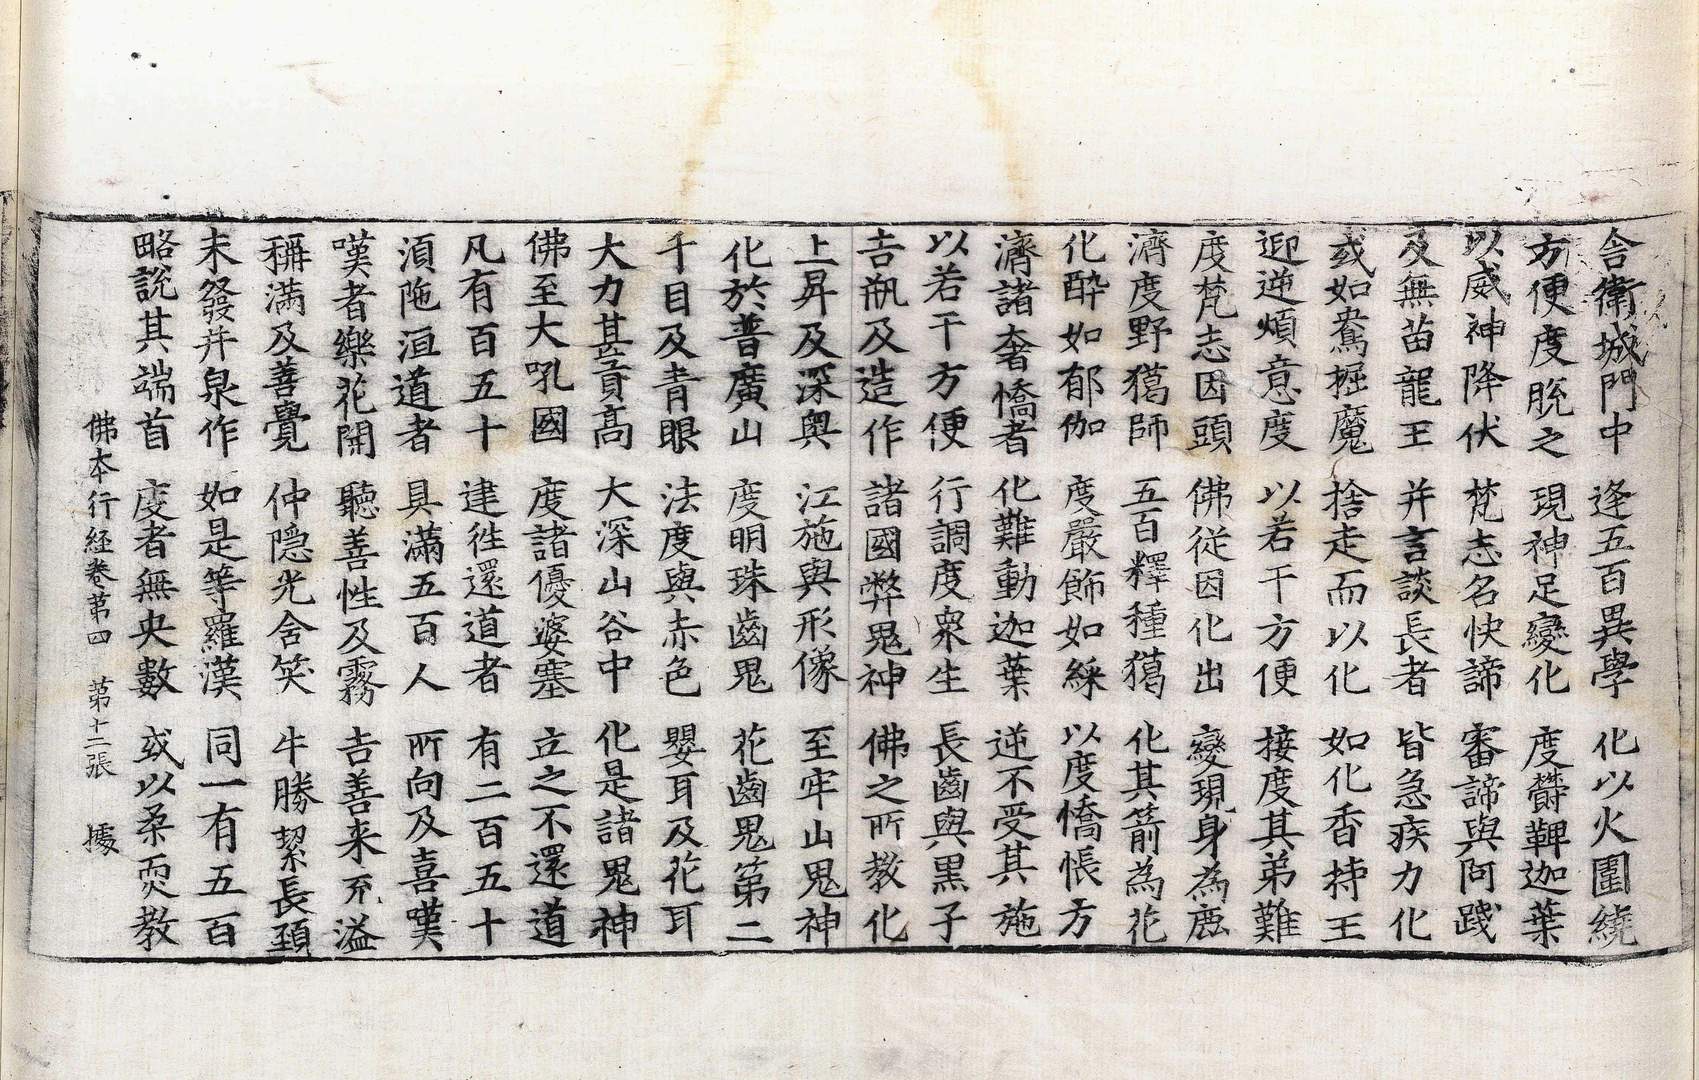 舍衛城門中　逢五百異學　化以火圍繞
方便度脫之　現神足變化　度欝鞞迦葉
以威神降伏　梵志名快諦　審諦與阿踐
及無苗龍王　并言談長者　皆急疾力化
或如鴦掘魔　捨走而以化　如化香持王
迎逆煩意度　以若干方便　接度其弟難
度梵志因頭　佛從因化出　變現身為鹿
濟度野獦師　五百釋種獦　化其箭為花
化醉如郁伽　度嚴飾如綵　以度憍悵方
濟諸奢憍者　化難動迦葉　逆不受其施
以若干方便　行調度衆生　長齒與黑子
吉瓶及造作　諸國弊鬼神　佛之所教化
上昇及深奧　江施與形像　至牢山鬼神
化於普廣山　度明珠齒鬼　花齒鬼第二
千目及青眼　法度與赤色　嬰耳及花耳
大力甚貢高　大深山谷中　化是諸鬼神
佛至大吼國　度諸優婆塞　立之不還道
凡有百五十　逮徃還道者　有二百五十
湏陁洹道者　具滿五百人　所向及喜嘆
嘆者樂花開　聽善性及霧　吉善来充溢
稱滿及善覺　仲隱光含笑　牛勝絜長頸
未發并泉作　如是等羅漢　同一有五百
略說其端首　度者無央數　或以柔耎教
佛本行経卷第四　第十二張　據